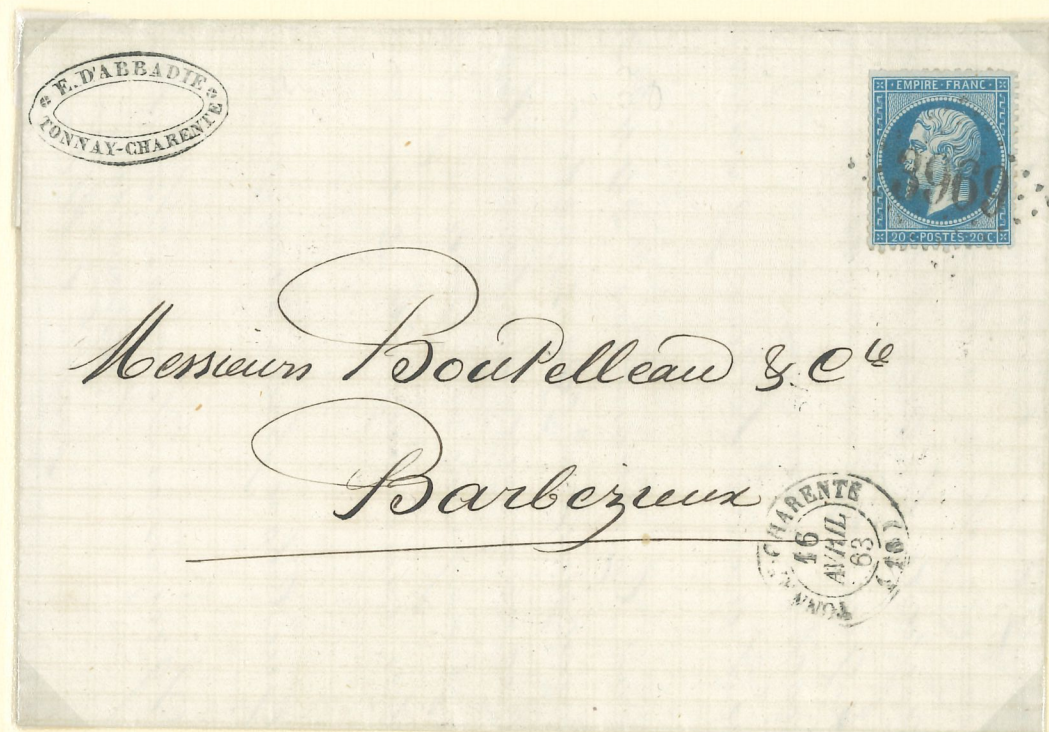 E. D'ABBADIE
TONNAY-CHARENTE
EMPIRE FRANC
3969
20 C POSTES 20 C
Messieurs Boutelleau & Cie
Barbezieux
TONNAY-CHARENTE
16
AVRIL
63
(16)